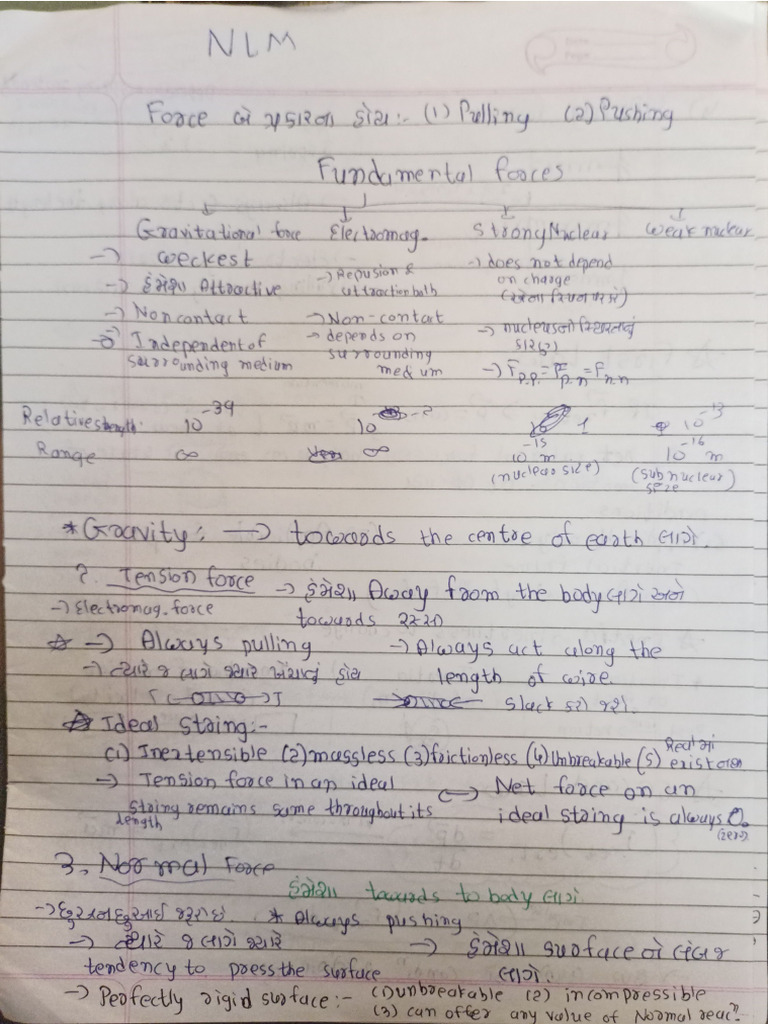 NLM
Force બે પ્રકારના હોય :- (1) Pulling (2) Pushing
Fundamental forces
Gravitational force Electromag. Strong Nuclear Weak nuclear
→ weckest
→ હંમેશા Attractive
→ Noncontact
→ Independent of
surrounding medium
→ Repusion &
attraction both
→ Non-contact
→ depends on
surrounding
medium
→ does not depend
on charge
→ nucleusની સ્થિરતાનું
કારણ
→ F_P.P. = F_P.n = F_n.n
Relative strength: 10^-39 10^-2 1 10^-13
Range ∞ ∞ 10^-15 m 10^-16 m
(nuclear size) (sub nuclear)
size
* Gravity: → towards the centre of earth લાગે.
2. Tension force → હંમેશા Away from the body લાગે અને
→ Electromag. force towards
→ Always pulling → Always act along the
→ ત્યારે જ લાગે જ્યારે ખેંચાતું હોય length of wire.
slack
Ideal string:-
(1) Inextensible (2) massless (3) frictionless (4) Unbreakable (5) Realમાં
exist
→ Tension force in an ideal Net force on an
string remains same throughout its ideal string is always 0.
length (zero)
3. Normal Force
હંમેશા towards to body લાગે
* Always pushing
→ ત્યારે જ લાગે જ્યારે → હંમેશા surfaceને લંબ જ
tendency to press the surface લાગે.
→ Perfectly rigid surface:- (1) unbreakable (2) incompressible
(3) can offer any value of Normal reacn